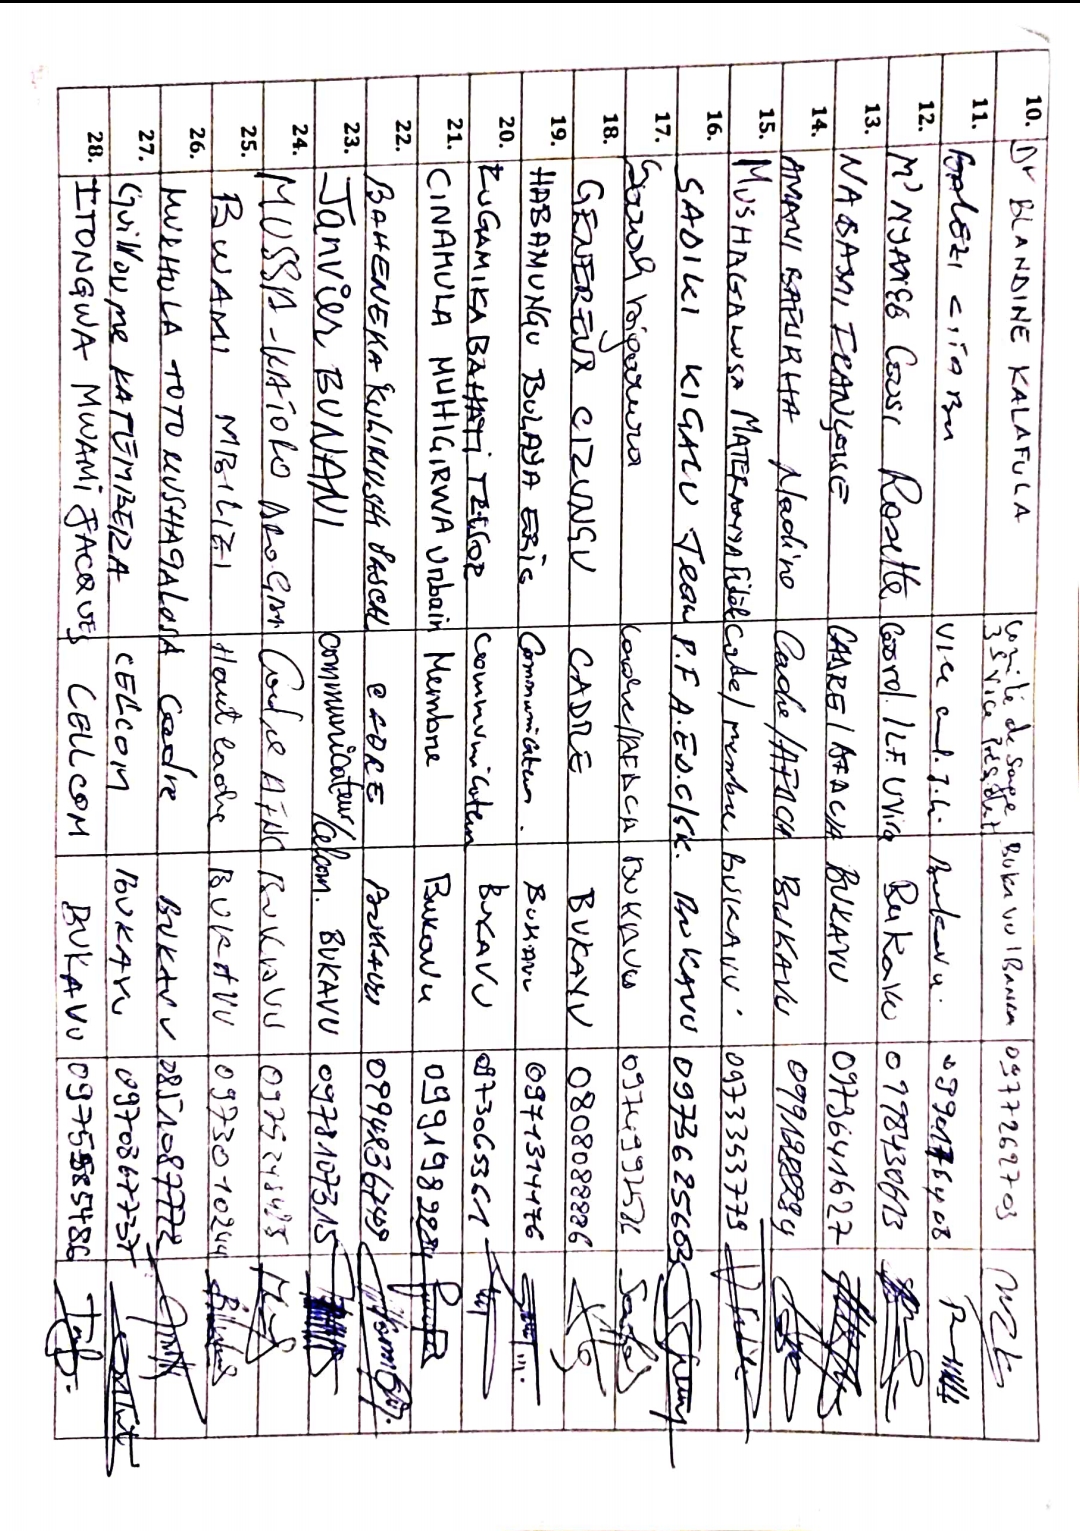 10. Dr BLANDINE KALAFULA Comité de Sage 3è Vice Président BUKAVU/IBANDA 0977262703
11. BALEZI Vice Bukavu.
12. M'NYAMEG Rosette Coord./LF UVira Bukavu 0978430613
13. NABAMI FRANÇOISE CADRE/AFACIA BUKAVU 0979641627
14. AMANI BAFURHA Nadine Cadre/AFACIA BUKAVU 0991988894
15. MUSHAGALUSA MATERANYA Fidèle Cadre/membre BUKAVU. 0973353779
16. SADIKI KIGALU Jean P.F A.ED.C/SK. BUKAVU 0973625662
17. Sarah Cadre/AFACA BUKAVU
18. GENEREUX CIZUNGU CADRE BUKAVU 0808088886
19. HABAMUNGU BULAYA ERIC Communicateur. BUKAVU 0971314176
20. ZUGAMIKA BAHATI TRESOR Communicateur BUKAVU 0973065361
21. CINAMULA MUHIGIRWA Urbain Membre BUKAVU
22. BAHENEKA CADRE BUKAVU
23. Janvier BUNANI Communicateur/Celcom. BUKAVU 0978107315
24. MUSSA-KATORO Cadre BUKAVU
25. BWAMI MBILIZI Haut cadre BUKAVU 0973010244
26. MUKHULA TOTO MUSHAGALUSA Cadre BUKAVU 0851087772
27. Guillaume KATEMBERA CELCOM BUKAVU 0970867737
28. ITONGWA MWAMI JACQUES CELLCOM BUKAVU 0975585486